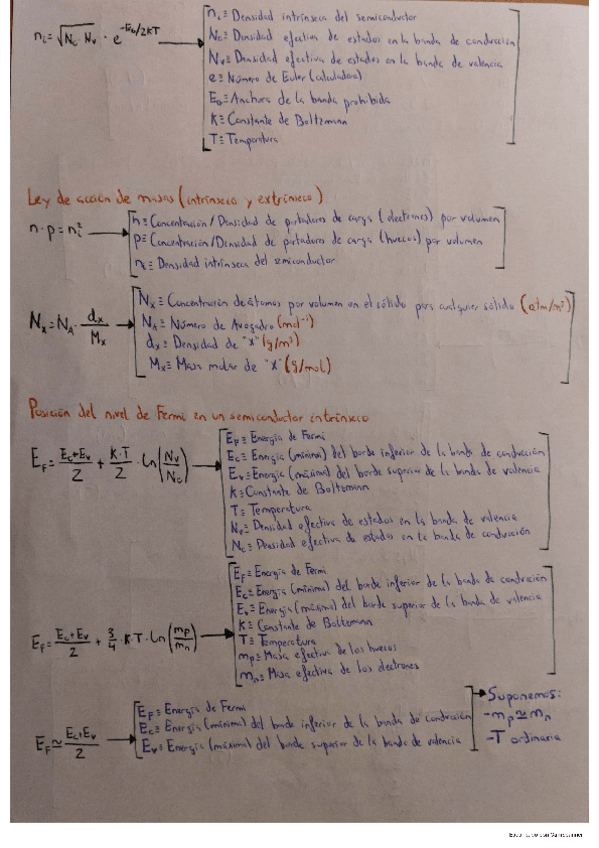 nᵢ = √(N_C · N_V) · e^(-E_G/2KT)
nᵢ ≡ Densidad intrínseca del semiconductor
N_C ≡ Densidad efectiva de estados en la banda de conducción
N_V ≡ Densidad efectiva de estados en la banda de valencia
e ≡ Número de Euler (calculadora)
E_G ≡ Anchura de la banda prohibida
K ≡ Constante de Boltzmann
T ≡ Temperatura
Ley de acción de masas (intrínseco y extrínseco)
n · p = nᵢ²
n ≡ Concentración/Densidad de portadores de carga (electrones) por volumen
p ≡ Concentración/Densidad de portadores de carga (huecos) por volumen
nᵢ ≡ Densidad intrínseca del semiconductor
N_x = N_A · d_x/M_x
N_x ≡ Concentración de átomos por volumen en el sólido para cualquier sólido (atm/m³)
N_A ≡ Número de Avogadro (mol⁻¹)
d_x ≡ Densidad de "x" (g/m³)
M_x ≡ Masa molar de "x" (g/mol)
Posición del nivel de Fermi en un semiconductor intrínseco
E_F = (E_C + E_V)/2 + (K·T)/2 · Ln(N_V/N_C)
E_F ≡ Energía de Fermi
E_C ≡ Energía (mínima) del borde inferior de la banda de conducción
E_V ≡ Energía (máxima) del borde superior de la banda de valencia
K ≡ Constante de Boltzmann
T ≡ Temperatura
N_V ≡ Densidad efectiva de estados en la banda de valencia
N_C ≡ Densidad efectiva de estados en la banda de conducción
E_F = (E_C + E_V)/2 + 3/4 · K·T · Ln(m_p/m_n)
E_F ≡ Energía de Fermi
E_C ≡ Energía (mínima) del borde inferior de la banda de conducción
E_V ≡ Energía (máxima) del borde superior de la banda de valencia
K ≡ Constante de Boltzmann
T ≡ Temperatura
m_p ≡ Masa efectiva de los huecos
m_n ≡ Masa efectiva de los electrones
E_F ≃ (E_C + E_V)/2
E_F ≡ Energía de Fermi
E_C ≡ Energía (mínima) del borde inferior de la banda de conducción
E_V ≡ Energía (máxima) del borde superior de la banda de valencia
Suponemos:
- m_p ≃ m_n
- T ordinaria